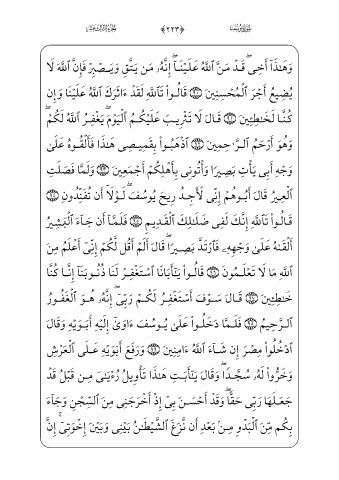 سورة يوسف ﴿٢٢٣﴾ الجزء الثالث عشر
وَهَٰذَآ أَخِي ۖ قَدْ مَنَّ ٱللَّهُ عَلَيْنَآ ۖ إِنَّهُۥ مَن يَتَّقِ وَيَصْبِرْ فَإِنَّ ٱللَّهَ لَا
يُضِيعُ أَجْرَ ٱلْمُحْسِنِينَ قَالُوا۟ تَٱللَّهِ لَقَدْ ءَاثَرَكَ ٱللَّهُ عَلَيْنَا وَإِن
كُنَّا لَخَٰطِـِٔينَ قَالَ لَا تَثْرِيبَ عَلَيْكُمُ ٱلْيَوْمَ ۖ يَغْفِرُ ٱللَّهُ لَكُمْ ۖ
وَهُوَ أَرْحَمُ ٱلرَّٰحِمِينَ ٱذْهَبُوا۟ بِقَمِيصِى هَٰذَا فَأَلْقُوهُ عَلَىٰ
وَجْهِ أَبِى يَأْتِ بَصِيرًا وَأْتُونِى بِأَهْلِكُمْ أَجْمَعِينَ وَلَمَّا فَصَلَتِ
ٱلْعِيرُ قَالَ أَبُوهُمْ إِنِّى لَأَجِدُ رِيحَ يُوسُفَ ۖ لَوْلَآ أَن تُفَنِّدُونِ
قَالُوا۟ تَٱللَّهِ إِنَّكَ لَفِى ضَلَٰلِكَ ٱلْقَدِيمِ فَلَمَّآ أَن جَآءَ ٱلْبَشِيرُ
أَلْقَىٰهُ عَلَىٰ وَجْهِهِۦ فَٱرْتَدَّ بَصِيرًا ۖ قَالَ أَلَمْ أَقُل لَّكُمْ إِنِّىٓ أَعْلَمُ مِنَ
ٱللَّهِ مَا لَا تَعْلَمُونَ قَالُوا۟ يَٰٓأَبَانَا ٱسْتَغْفِرْ لَنَا ذُنُوبَنَآ إِنَّا كُنَّا
خَٰطِـِٔينَ قَالَ سَوْفَ أَسْتَغْفِرُ لَكُمْ رَبِّىٓ ۖ إِنَّهُۥ هُوَ ٱلْغَفُورُ
ٱلرَّحِيمُ فَلَمَّا دَخَلُوا۟ عَلَىٰ يُوسُفَ ءَاوَىٰٓ إِلَيْهِ أَبَوَيْهِ وَقَالَ
ٱدْخُلُوا۟ مِصْرَ إِن شَآءَ ٱللَّهُ ءَامِنِينَ وَرَفَعَ أَبَوَيْهِ عَلَى ٱلْعَرْشِ
وَخَرُّوا۟ لَهُۥ سُجَّدًا ۖ وَقَالَ يَٰٓأَبَتِ هَٰذَا تَأْوِيلُ رُءْيَٰىَ مِن قَبْلُ قَدْ
جَعَلَهَا رَبِّى حَقًّا ۖ وَقَدْ أَحْسَنَ بِىٓ إِذْ أَخْرَجَنِى مِنَ ٱلسِّجْنِ وَجَآءَ
بِكُم مِّنَ ٱلْبَدْوِ مِنۢ بَعْدِ أَن نَّزَغَ ٱلشَّيْطَٰنُ بَيْنِى وَبَيْنَ إِخْوَتِىٓ ۚ إِنَّ